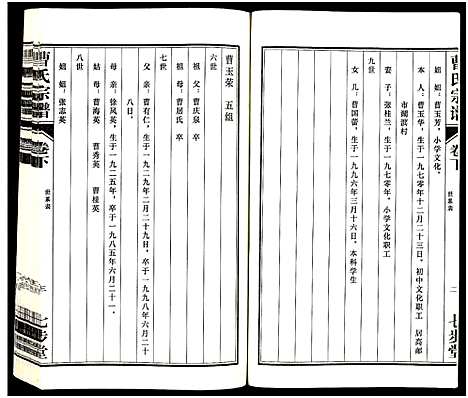 曹氏宗谱
卷下
世系表
二
七步堂
姐姐：曹玉芳，小学文化。
本人：曹玉华，生于一九七零年十二月二十三日，初中文化职工 居高邮
市湖滨村
九世
妻子：张桂兰，生于一九七零年，小学文化职工
女儿：曹国蕾，生于一九九六年三月十六日，本科学生
曹玉荣 五组
六世
祖父：曹庆泉 卒
祖母：曹居氏 卒
七世
父亲：曹有仁，生于一九二九年二月二十九日，卒于一九九八年六月二十
八日。
母亲：徐凤英，生于一九二五年，卒于一九八五年六月二十一。
姑母：曹海英 曹秀英 曹桂英
八世
姐姐：张志英
曹氏宗谱
卷下
世系表
七步堂